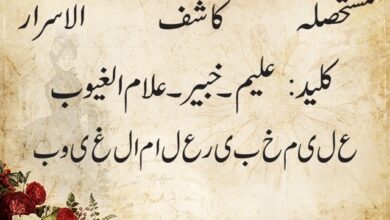 مستحصلہ کاشف الاسرار
کلید: علیم۔خبیر۔علام الغیوب
ع ل ی م خ ب ی ر ع ل ا م ا ل غ ی و ب